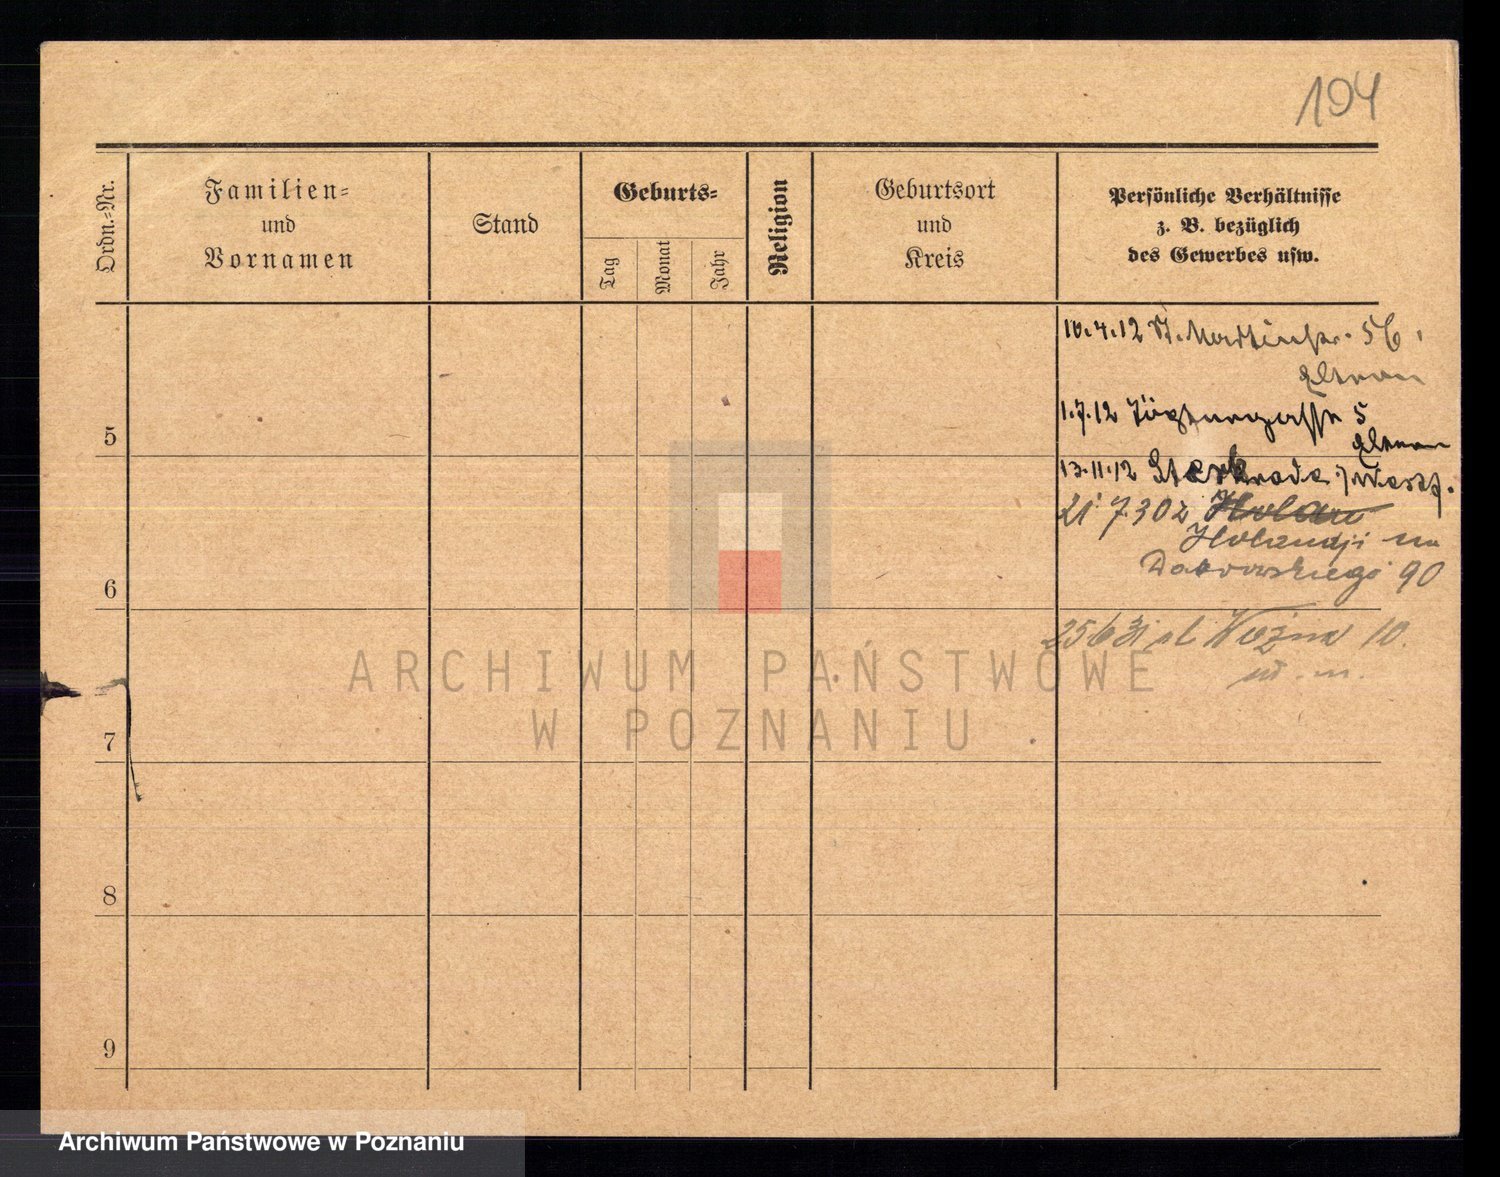 194
Ordn.-Nr.
Familien-
und
Vornamen
Stand
Geburts-
Tag
Monat
Jahr
Religion
Geburtsort
und
Kreis
Persönliche Verhältnisse
z. B. bezüglich
des Gewerbes usw.
10.4.12 St. Martinstr. 56.
Eltern
1.7.12 5
5
Eltern
13.11.12 Sterkrade / Westf.
21 7 30 z Holan
Holandji
Dabrowskiego 90
6
25 6 31 Woźna 10.
ARCHIWUM PAŃSTWOWE
W POZNANIU
7
8
9
Archiwum Państwowe w Poznaniu